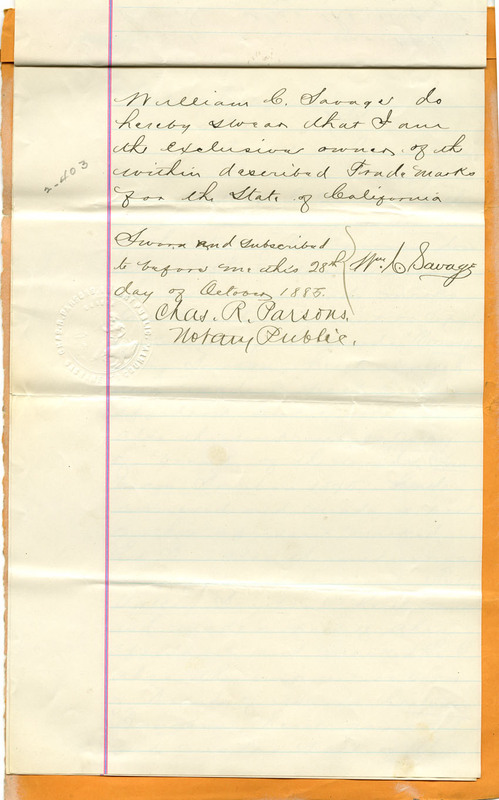 William C. Savage do
hereby swear that I am
the exclusive owner of the
within described Trade Marks
for the State of California
2-403
Sworn and Subscribed
to before me this 28th
day of October 1885.
Wm C Savage
Chas. R. Parsons.
Notary Public.